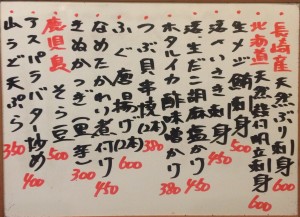 長崎産 天然ぶり刺身 600
北海道 天然帆立刺身 600
生メジ鮪刺身 500
活〆いさき刺身 450
活生だこ胡麻塩かけ 450
ホタルイカ酢味噌かけ 380
つぶ貝串焼(2本) 380
ふぐ唐揚げ(2本) 600
なめたかれい煮付け 450
きぬかつぎ(里芋) 300
鹿児島 そら豆 500
アスパラバター炒め 400
山うど天ぷら 350